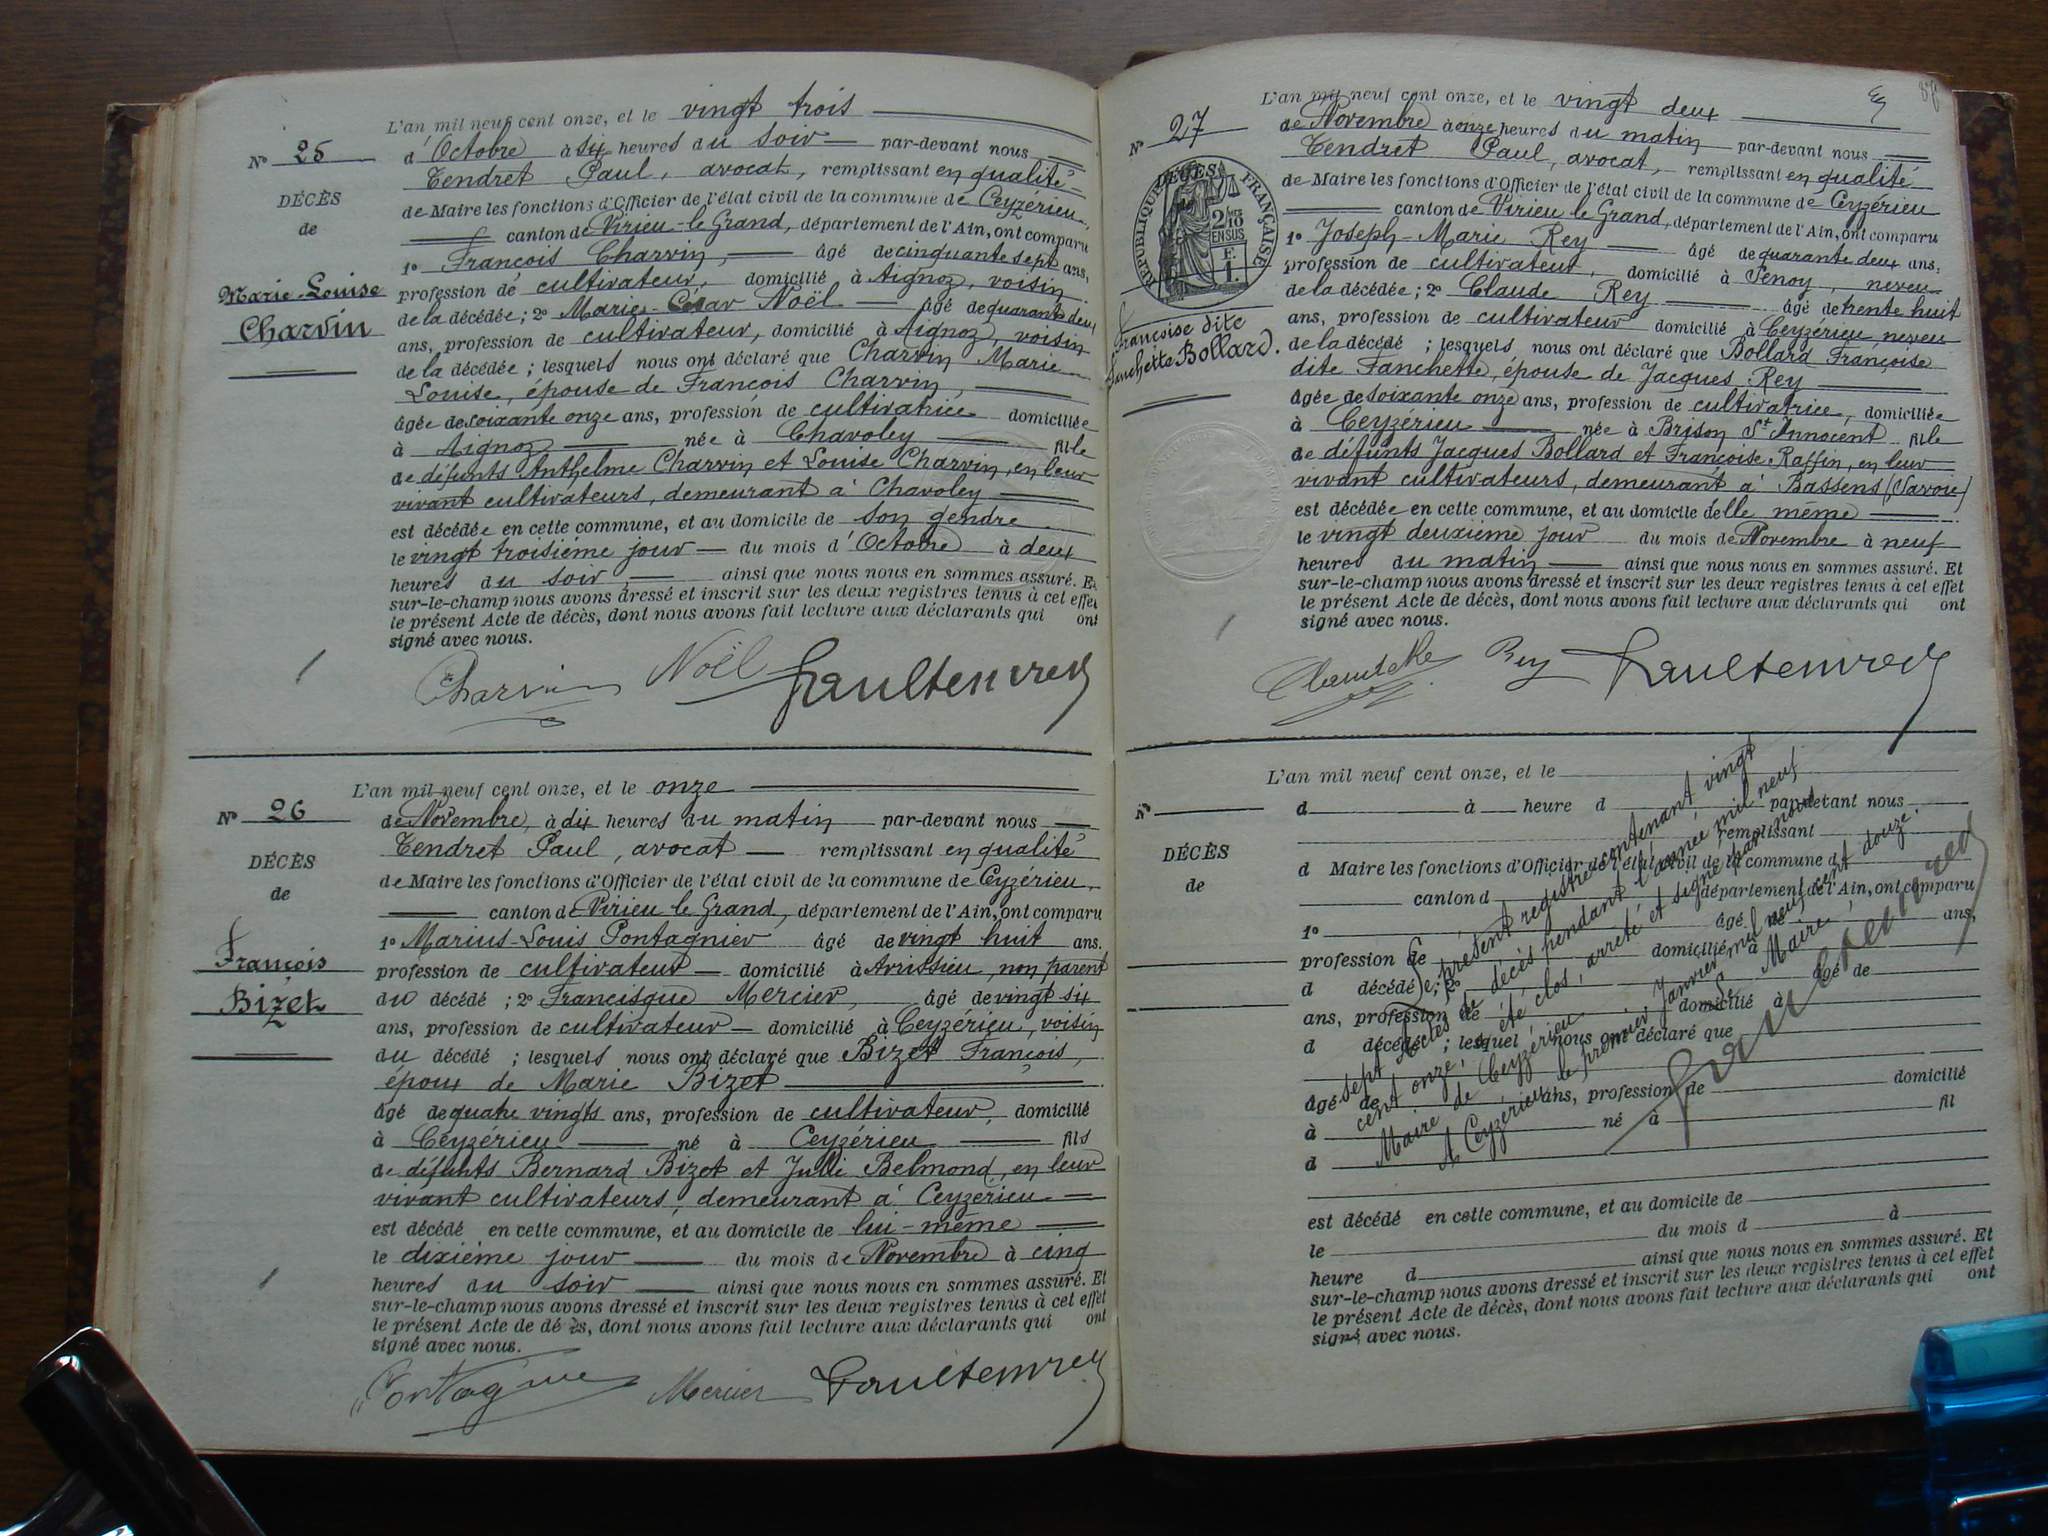 L'an mil neuf cent onze, et le vingt trois
Nº 25
d'Octobre à six heures du soir par-devant nous
Tendret Paul, avocat, remplissant en qualité
DÉCÈS
de Maire les fonctions d'Officier de l'état civil de la commune de Ceyzérieu
de
canton de Virieu-le-Grand, département de l'Ain, ont comparu
1º François Charvin, âgé de cinquante sept ans,
Marie-Louise
profession de cultivateur, domicilié à Aignoz, voisin
Charvin
de la décédée; 2º Marie-César Noël âgé de quarante deux
ans, profession de cultivateur, domicilié à Aignoz, voisin
de la décédée; lesquels nous ont déclaré que Charvin Marie
Louise, épouse de François Charvin,
âgée de soixante onze ans, profession de cultivatrice domiciliée
à Aignoz née à Chavoley fille
de défunts Anthelme Charvin et Louise Charvin, en leur
vivant cultivateurs, demeurant à Chavoley
est décédée en cette commune, et au domicile de son gendre
le vingt troisième jour du mois d'Octobre à deux
heures du soir, ainsi que nous nous en sommes assuré. Et
sur-le-champ nous avons dressé et inscrit sur les deux registres tenus à cet effet
le présent Acte de décès, dont nous avons fait lecture aux déclarants qui ont
signé avec nous.
Charvin Noël Paul Tendret
L'an mil neuf cent onze, et le onze
Nº 26
de Novembre, à dix heures du matin par-devant nous
Tendret Paul, avocat remplissant en qualité
DÉCÈS
de Maire les fonctions d'Officier de l'état civil de la commune de Ceyzérieu,
de
canton de Virieu le Grand, département de l'Ain, ont comparu
1º Marius-Louis Pontagnier âgé de vingt huit ans.
François
profession de cultivateur domicilié à Avrissieu, non parent
Bizet
du décédé; 2º Francisque Mercier, âgé de vingt six
ans, profession de cultivateur domicilié à Ceyzérieu, voisin
du décédé; lesquels nous ont déclaré que Bizet François,
époux de Marie Bizet
âgé de quatre vingts ans, profession de cultivateur, domicilié
à Ceyzérieu né à Ceyzérieu fils
de défunts Bernard Bizet et Julie Belmond, en leur
vivant cultivateurs, demeurant à Ceyzérieu
est décédé en cette commune, et au domicile de lui-même
le dixième jour du mois de Novembre à cinq
heures du soir ainsi que nous nous en sommes assuré. Et
sur-le-champ nous avons dressé et inscrit sur les deux registres tenus à cet effet
le présent Acte de décès, dont nous avons fait lecture aux déclarants qui ont
signé avec nous.
Pontagnier Mercier Paul Tendret
L'an mil neuf cent onze, et le vingt deux
Nº 27
de Novembre à onze heures du matin par-devant nous
Tendret Paul, avocat, remplissant en qualité
RÉPUBLIQUE FRANÇAISE
DÉCÈS
2/10 EN SUS
F. 1.
de Maire les fonctions d'Officier de l'état civil de la commune de Ceyzérieu
canton de Virieu le Grand, département de l'Ain, ont comparu
1º Joseph-Marie Rey âgé de quarante deux ans,
profession de cultivateur, domicilié à Vénoy, neveu
de la décédée; 2º Claude Rey âgé de trente huit
Françoise dite
Fanchette Bollard.
ans, profession de cultivateur domicilié à Ceyzérieu neveu
de la décédé; lesquels nous ont déclaré que Bollard Françoise
dite Fanchette, épouse de Jacques Rey
âgée de soixante onze ans, profession de cultivatrice, domiciliée
à Ceyzérieu née à Brison St Innocent fille
de défunts Jacques Bollard et Françoise Raffin, en leur
vivant cultivateurs, demeurant à Bassens (Savoie)
est décédée en cette commune, et au domicile delle même
le vingt deuxième jour du mois de Novembre à neuf
heures du matin ainsi que nous nous en sommes assuré. Et
sur-le-champ nous avons dressé et inscrit sur les deux registres tenus à cet effet
le présent Acte de décès, dont nous avons fait lecture aux déclarants qui ont
signé avec nous.
Claude Rey Rey Paul Tendret
L'an mil neuf cent onze, et le
Nº
d à heure d par-devant nous
remplissant
DÉCÈS
d Maire les fonctions d'Officier de l'état civil de la commune d
de
canton d département de l'Ain, ont comparu
1º âgé de ans,
profession de domicilié à
d décédé; 2º âgé de
ans, profession de domicilié à
d décédé; lesquel nous ont déclaré que
âgé de ans, profession de domicilié
à né à fil
d
est décédé en cette commune, et au domicile de
le du mois d à
heure d ainsi que nous nous en sommes assuré. Et
sur-le-champ nous avons dressé et inscrit sur les deux registres tenus à cet effet
le présent Acte de décès, dont nous avons fait lecture aux déclarants qui ont
signé avec nous.
Le présent registre contenant vingt
sept Actes de décès pendant l'année mil neuf
cent onze, a été clos, arrêté et signé par nous
Maire de Ceyzérieu
A Ceyzérieu le premier Janvier mil neuf cent douze.
Le Maire,
Paul Tendret